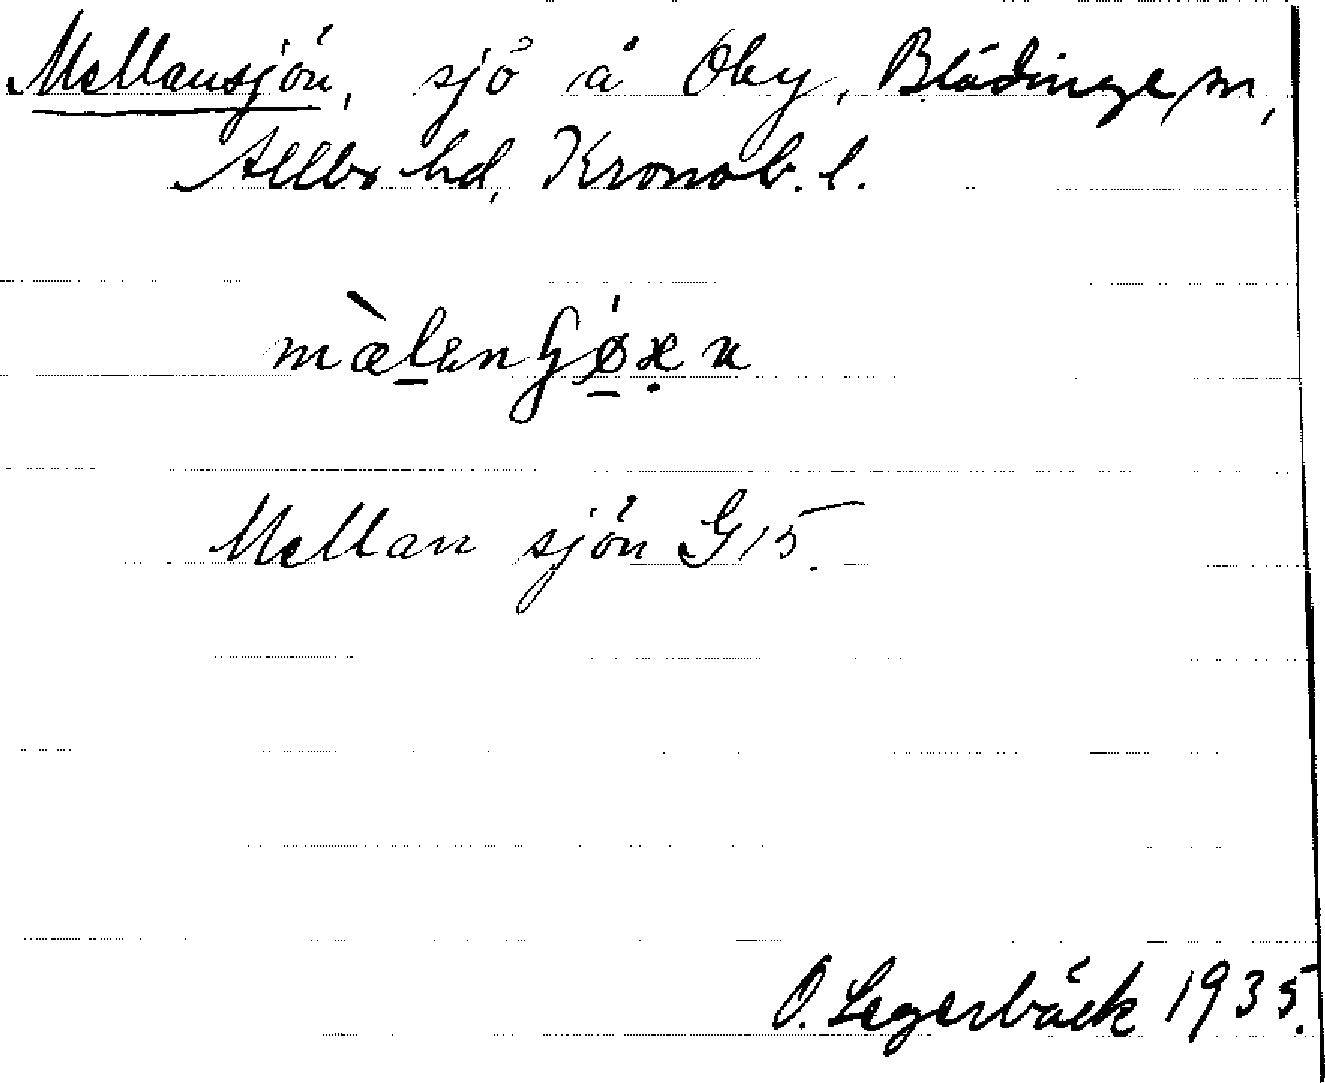 Mellansjön, sjö å Oby, Blädinge sn,
Allbo hd, Kronob. l.
Mellan sjön G 15.
O. Segerbäck 1935.